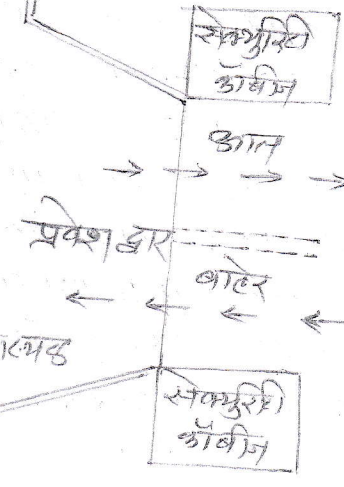 सेक्युरिटी
कॅबीन
आत
प्रवेश द्वार
बाहेर
सेक्युरिटी
कॅबीन